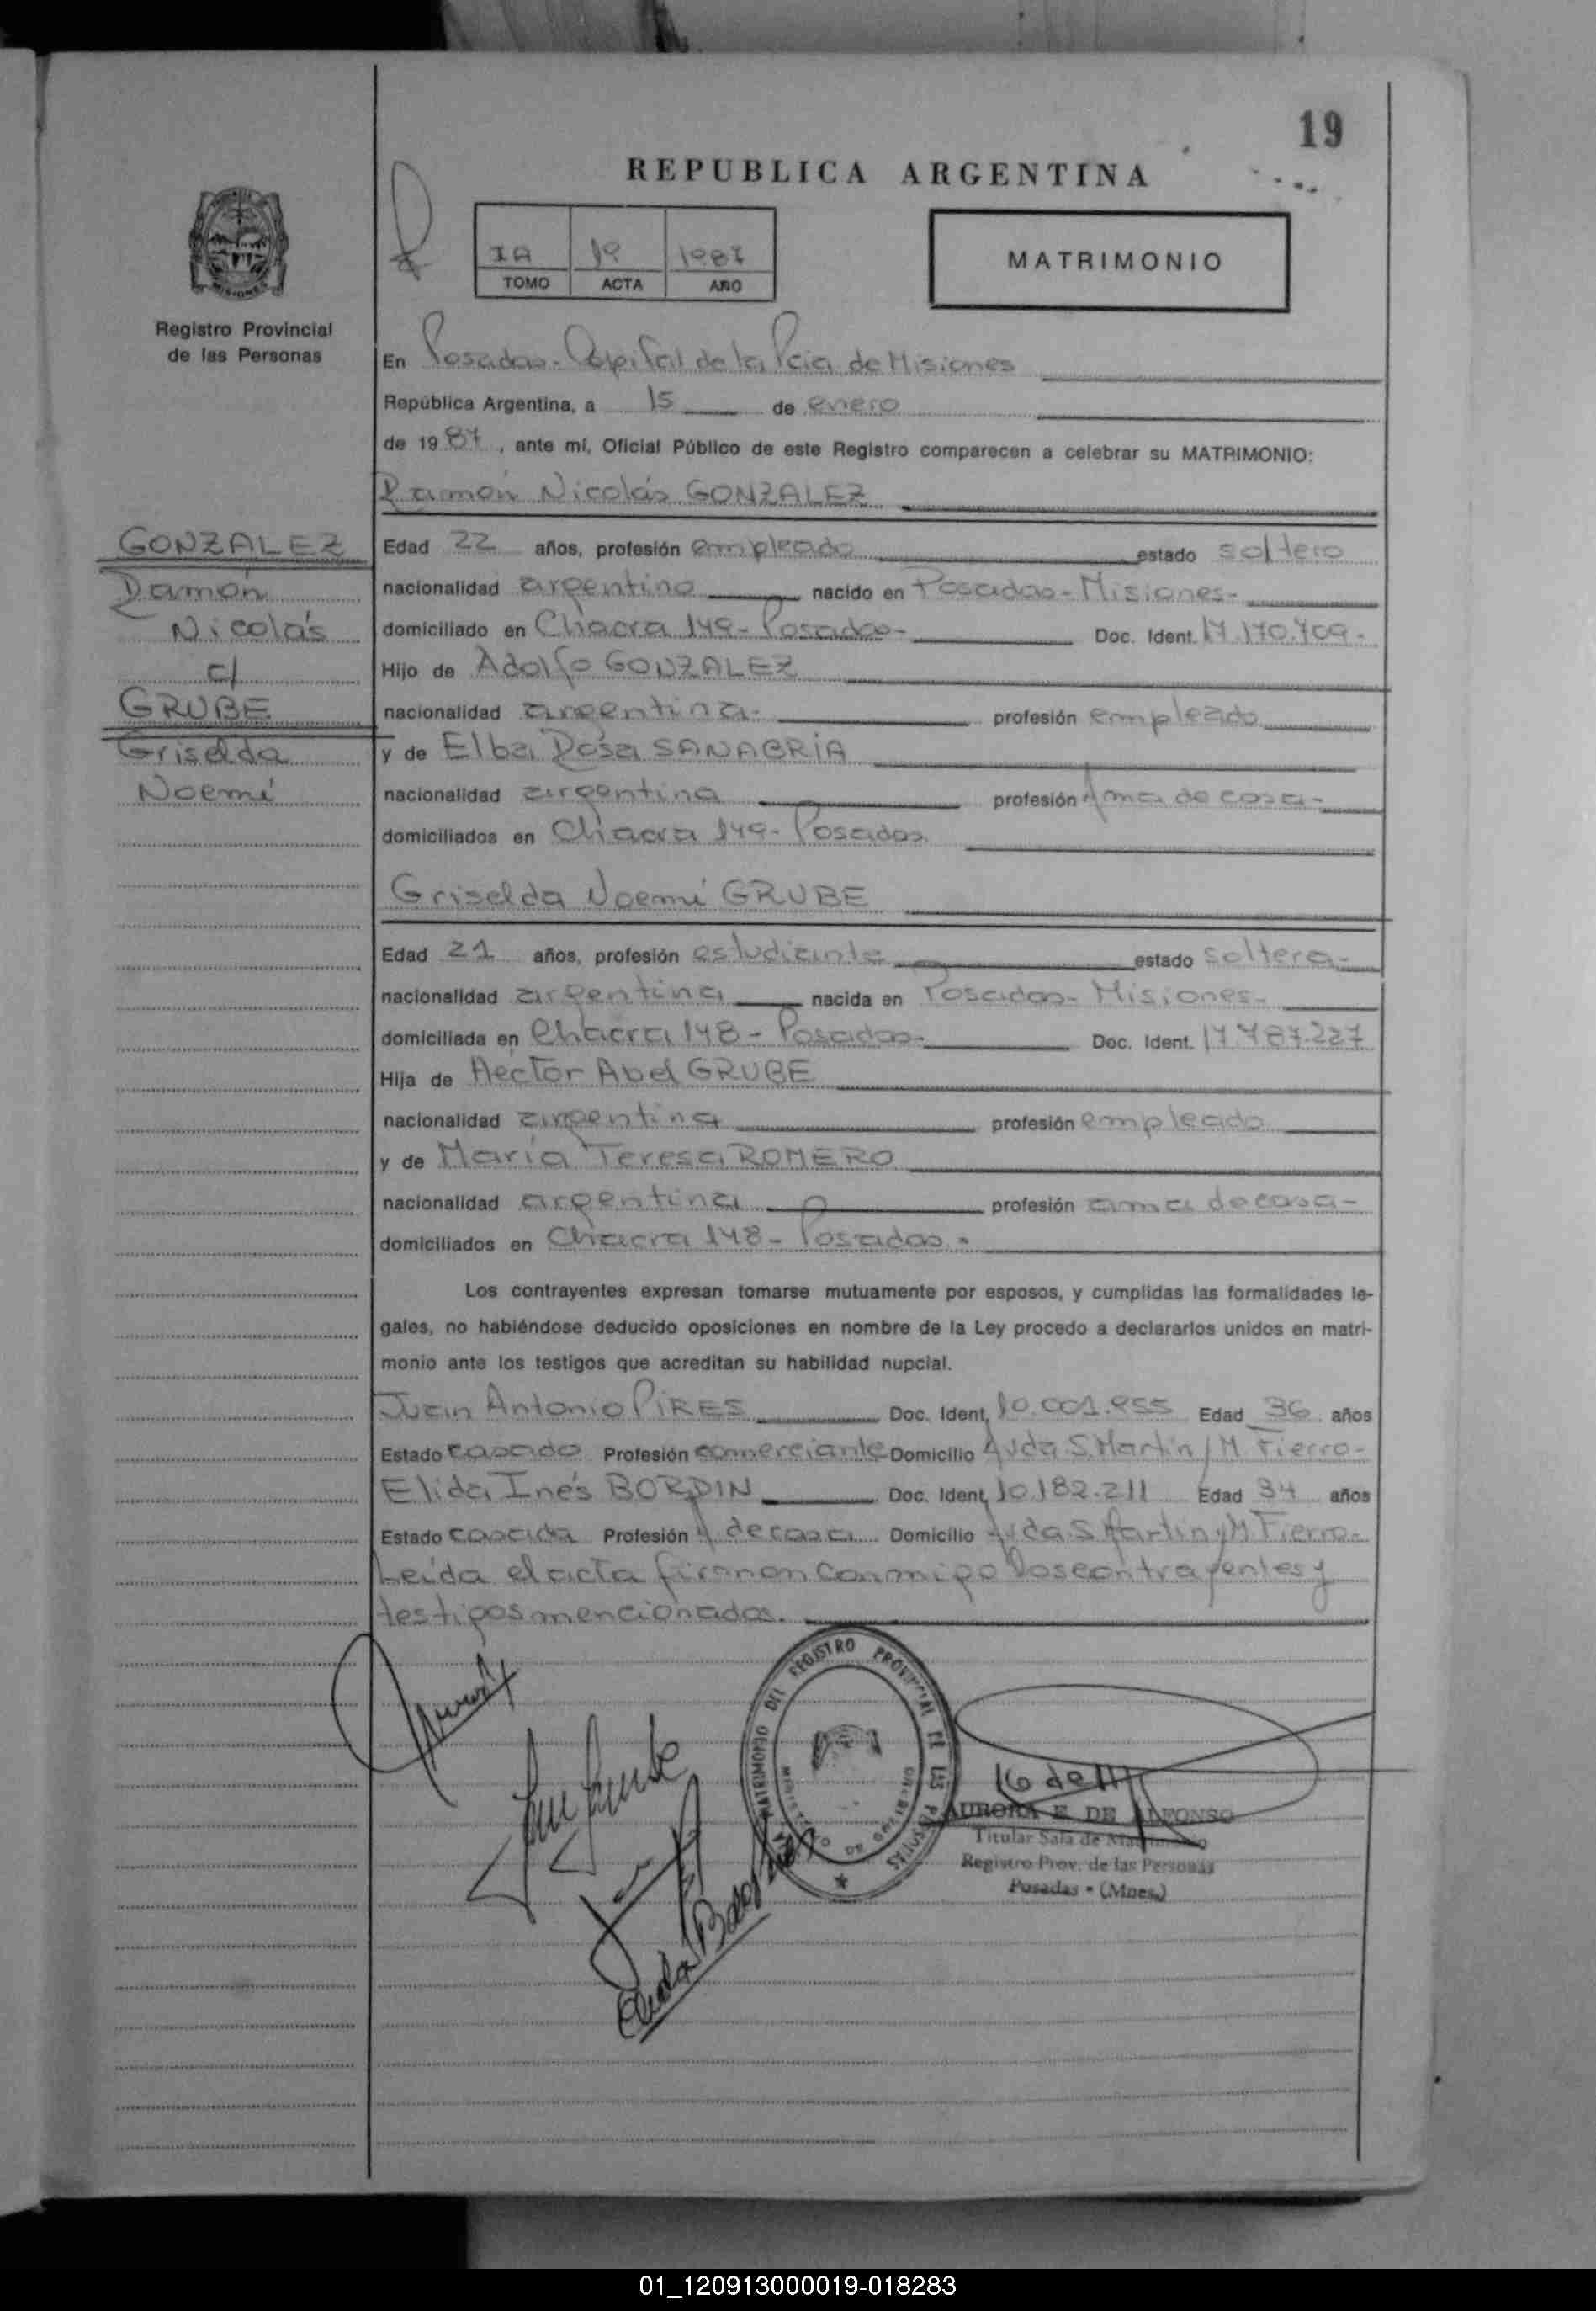 19
REPUBLICA ARGENTINA
IA 19 1987
TOMO ACTA AÑO
MATRIMONIO
MISIONES
Registro Provincial
de las Personas
En Posadas - Capital de la Pcia de Misiones
República Argentina, a 15 de enero
de 1987, ante mí, Oficial Público de este Registro comparecen a celebrar su MATRIMONIO:
Ramón Nicolás GONZALEZ
GONZALEZ
Ramón
Nicolás
c/
GRUBE
Griselda
Noemí
Edad 22 años, profesión empleado estado soltero
nacionalidad argentina nacido en Posadas - Misiones-
domiciliado en Chacra 149 - Posadas- Doc. Ident. 17.170.709-
Hijo de Adolfo GONZALEZ
nacionalidad argentina- profesión empleado
y de Elba Rosa SANABRIA
nacionalidad argentina profesión Ama de casa-
domiciliados en Chacra 149 - Posadas
Griselda Noemí GRUBE
Edad 21 años, profesión estudiante estado soltera-
nacionalidad argentina nacida en Posadas - Misiones-
domiciliada en Chacra 148 - Posadas- Doc. Ident. 17.787.227
Hija de Héctor Abel GRUBE
nacionalidad argentina profesión empleado
y de María Teresa ROMERO
nacionalidad argentina profesión ama de casa-
domiciliados en Chacra 148 - Posadas-
Los contrayentes expresan tomarse mutuamente por esposos, y cumplidas las formalidades le-
gales, no habiéndose deducido oposiciones en nombre de la Ley procedo a declararlos unidos en matri-
monio ante los testigos que acreditan su habilidad nupcial.
Juan Antonio PIRES Doc. Ident. 10.001.955 Edad 36 años
Estado casado Profesión comerciante Domicilio Avda S. Martín / M. Fierro-
Elida Inés BORDIN Doc. Ident. 10.182.211 Edad 34 años
Estado casada Profesión A de casa Domicilio Avda S Martin y M Fierro-
Leída el acta firman conmigo los contrayentes y
testigos mencionados.
MATRIMONIO DEL REGISTRO PROVINCIAL DE LAS PERSONAS
AURORA E. DE ALFONSO
Titular Sala de Matrimonio
Registro Prov. de las Personas
Posadas - (Mnes.)
01_120913000019-018283